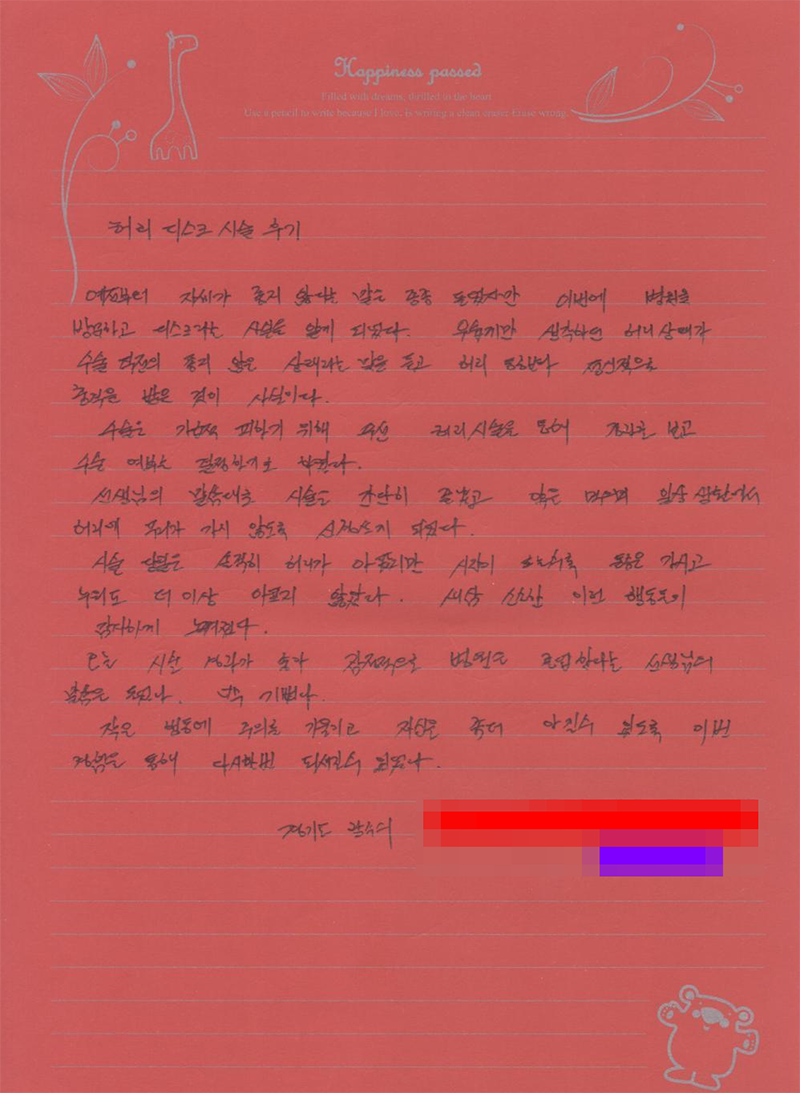 Happiness passed
Filled with dreams, thrilled in the heart
Use a pencil to write because I love. Is writing a clean music Erase wrong.
허리 디스크 시술 후기
예전부터 자세가 좋지 않다는 말은 종종 들었지만 이번에 병원을
방문하고 디스크라는 사실을 알게 되었다. 생각하면 허리상태가
수술 직전의 좋지 않은 상태라는 말을 듣고 허리 정신적으로
충격을 받은 것이 사실이다.
수술은 가급적 피하기 위해 우선 허리시술을 통해 경과를 보고
수술 여부는 결정하기로 하였다.
선생님의 말씀대로 시술도 간단히 끝났고 약도 먹으며 일상생활에서
허리에 무리가 가지 않도록 신경쓰게 되었다.
시술 당일은 솔직히 허리가 아팠지만 시간이 지날수록 통증은 가시고
누워도 더 이상 아프지 않았다. 새삼 사소한 이런 행동들이
감사하게 느껴졌다.
오늘 시술 경과가 좋아 긍정적으로 선생님의
말씀을 들었다. 너무 기뻤다.
작은 행동에 주의를 기울이고 자신을 좀더 아낄수 있도록 이번
경험을 통해 다시한번 되새길수 있었다.
경기도